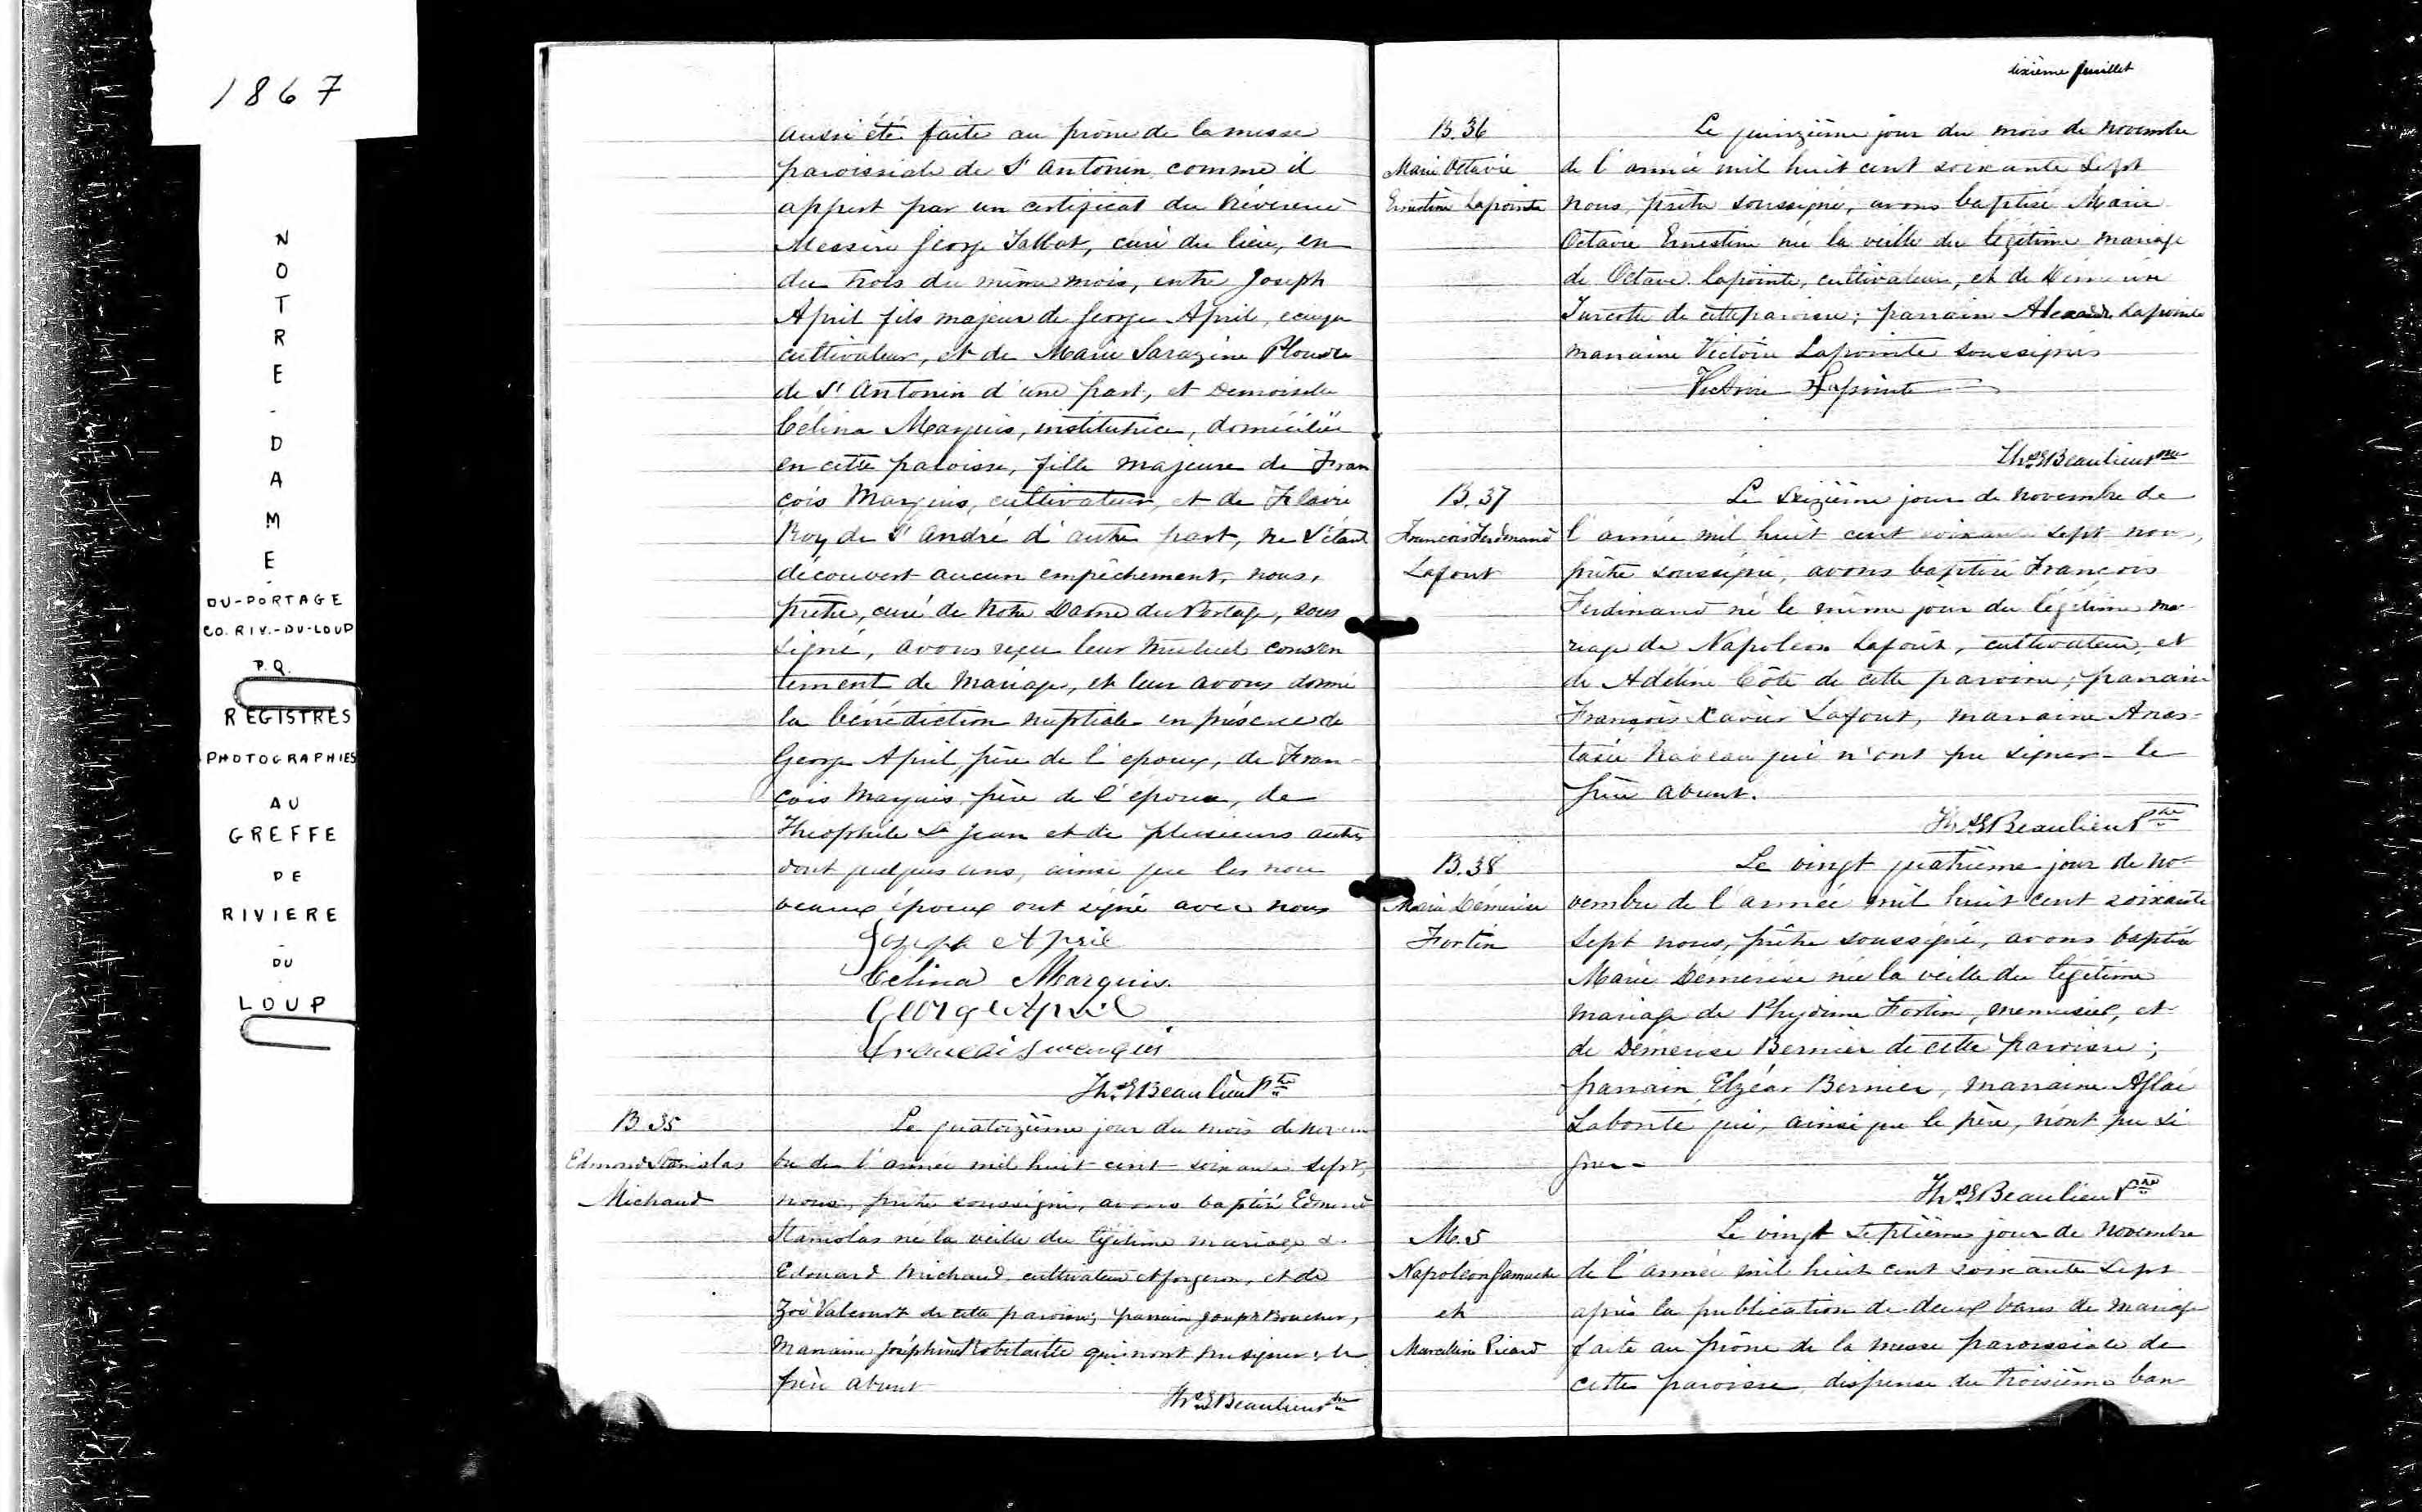 1867
NOTRE-DAME-
DU-PORTAGE
CO. RIV.-DU-LOUP
P.Q.
REGISTRES
PHOTOGRAPHIES
AU
GREFFE
DE
RIVIERE
-
DU
-
LOUP
aussi été faite au prône de la messe
paroissiale de St Antonin comme il
appert par un certificat du Révérend
Messire George Talbot, curé du lieu, en
du trois du même mois, entre Joseph
April fils majeur de George April, ecuyer
cultivateur, et de Marie Sarazine Plourde
de St Antonin d'une part, et Demoiselle
Célina Marquis, institutrice, domiciliée
en cette paroisse, fille majeure de Fran
çois Marquis, cultivateur, et de Flavie
Roy de St André d'autre part, ne s'étant
découvert aucun empêchement, nous,
prêtre, curé de Notre Dame du Portage, sous
signé, avons reçu leur mutuel consen
tement de mariage, et leur avons donné
la bénédiction nuptiale en présence de
George April père de l'epoux, de Fran-
çois Marquis père de l'épouse, de
Theophile St Jean et de plusieurs autres
dont quelques uns, ainsi que les nou
veaux époux ont signé avec nous
Joseph April
Celina Marquis.
George April
Francois marquis
Ths. E Beaulieu Ptre
B. 35
Edmond Stanislas
Michaud
Le quatorzième jour du mois de novem
bre de l'année mil huit cent soixante sept,
nous, prêtre soussigné, avons baptisé Edmond
Stanislas né la veille du légitime mariage de
Edouard Michaud cultivateur et forgeron, et de
Zoé Valcourt de cette paroisse; parrain Joseph Boucher,
Marraine Joséphine Robitaille qui n'ont pu signer; le
père absent
Ths. E Beaulieu Ptre
dixième feuillet
B. 36
Marie Octavie
Ernestine Lapointe
Le quinzième jour du mois de novembre
de l'année mil huit cent soixante sept
nous, prêtre soussigné, avons baptisé Marie
Octavie Ernestine née la veille du légitime mariage
de Octave Lapointe, cultivateur, et de
Turcotte de cette paroisse; parrain Lapointe
marraine Victoire Lapointe soussignés
Victoire Lapointe
Ths. E Beaulieu Ptre
B. 37
François Ferdinand
Lafont
Le seizième jour de novembre de
l'année mil huit cent soixante sept nous,
prêtre soussigné, avons baptisé François
Ferdinand né le même jour du légitime ma-
riage de Napoleon Lafont, cultivateur, et
de Adéline Côté de cette paroisse; parrain
François Xavier Lafont, marraine Anas-
tasie Nadeau qui n'ont pu signer - le
père absent.
Ths. E Beaulieu Ptre
B. 38
Marie Démérise
Fortin
Le vingt quatrième jour de no-
vembre de l'année mil huit cent soixante
sept nous, prêtre soussigné, avons baptisé
Marie Démérise née la veille du légitime
mariage de Phydime Fortin, menuisier, et
de Démerise Bernier de cette paroisse;
parrain Elzéar Bernier, marraine Aglaé
Labonté qui, ainsi que le père, n'ont pu si
gner -
Ths. E Beaulieu Ptre
M. 5
Napoléon Gamache
et
Marcelline Picard
Le vingt septième jour de novembre
de l'année mil huit cent soixante sept
après la publication de deux bans de mariage
faite au prône de la messe paroissiale de
cette paroisse, dispense du troisième ban